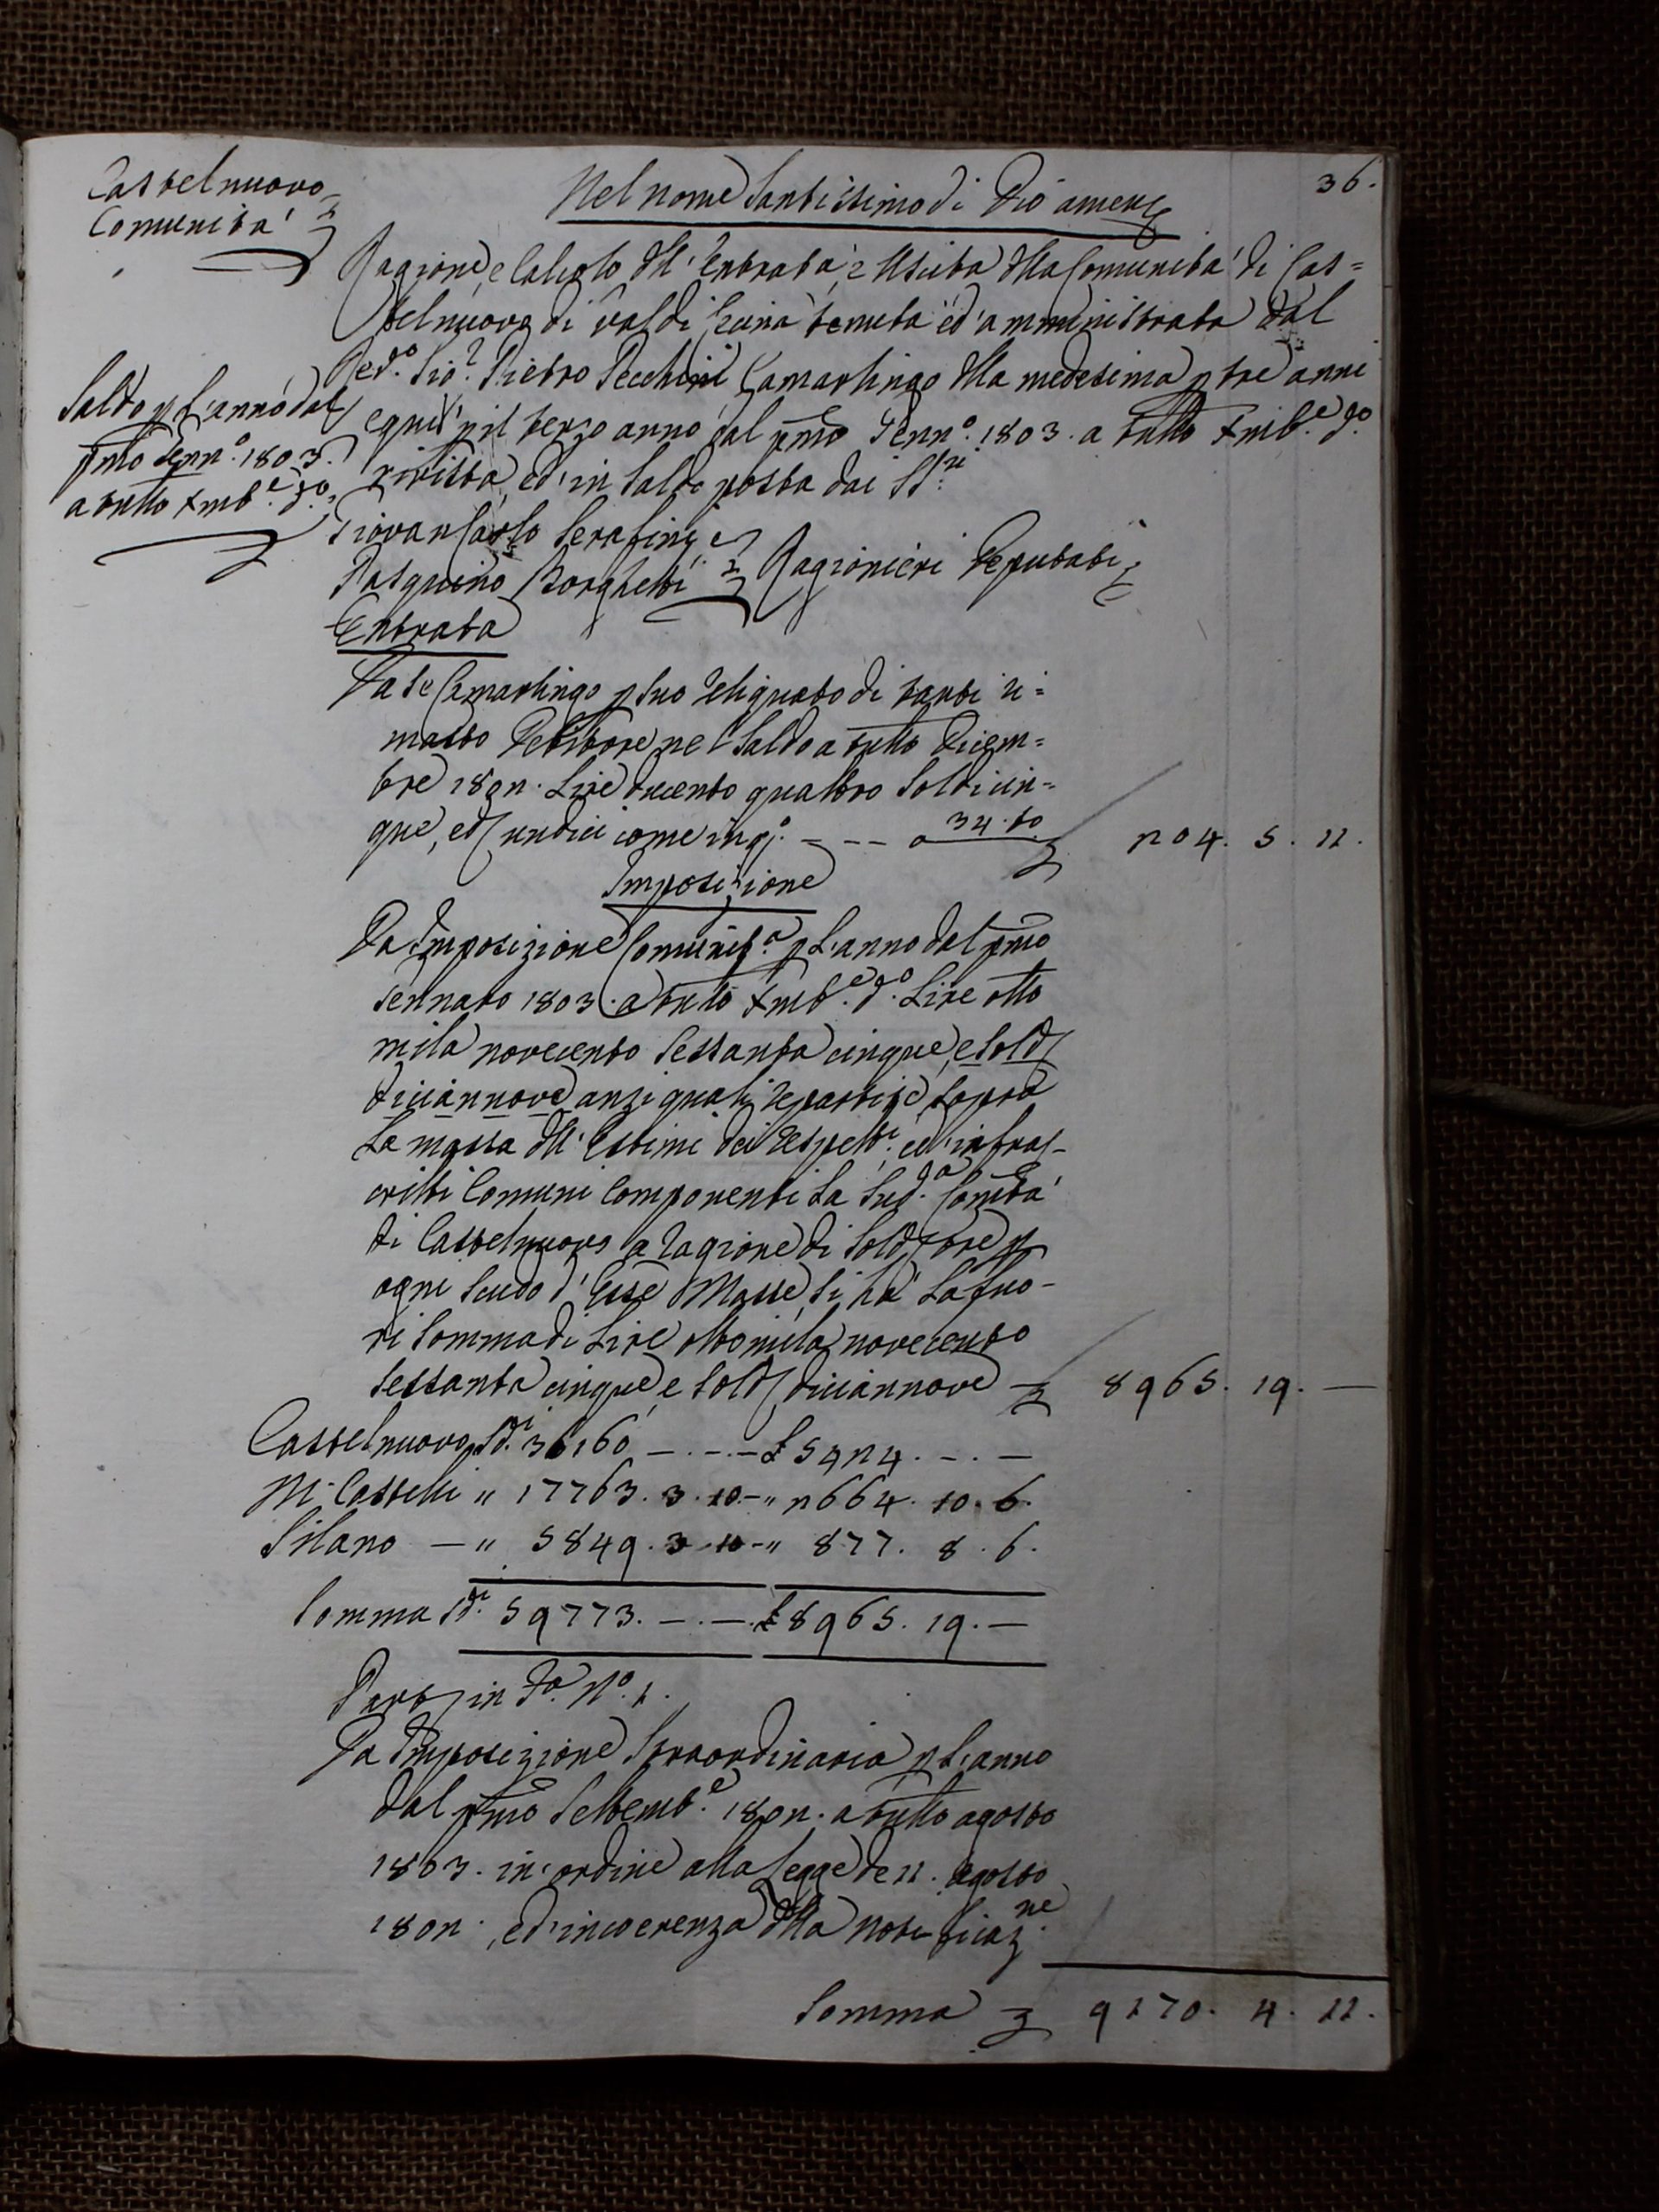 36.
Castelnuovo
Comunità
Nel nome Santissimo di Dio amen
Ragione, e Calcolo dell'Entrata, e Uscita della Comunità di Cas=
telnuovo di Val di Cecina tenuta ed'amministrata dal
Ped.º Sig.r Pietro Pecchini Camarlingo della medesima p tre anni
e quest' p il terzo anno dal pmo Genn.º 1803. a tutto Xmb.e d.º
rivista, ed'in Saldo posta dai SS.ri
Saldo p L'anno dal
pmo Genn.º 1803.
a tutto Xmb.e d.º
Giovan Carlo Serafini, e
Pasquino Borghetti
Ragionieri Deputati
Entrata
Da Se Camarlingo p Suo Reliquato di tanti ri=
masto Debitore nel Saldo a tutto Dicem=
bre 1802. Lire ducento quattro Soldi cin=
que, ed undici come in q.º - - - a 34. to 204. 5. 11.
Imposizione
Da Imposizione Comunit.a p L'anno dal pmo
Gennaro 1803. a tutto Xmb.e d.º Lire otto
mila novecento Sessanta cinque, e Sold
diciannove anzi quali repartite Sopra
La massa dell'Estimi dei respett.i ed'infras-
critti Comuni Componenti La Sud.a Comtà
di Castelnuovo a ragione di Sold tre p
ogni Scudo d'Esse Masse, Si hà La fuo-
ri Somma di Lire ottomila novecento
Sessanta cinque, e Sold diciannove 8965. 19. —
Castelnuovo Sd.i 36160 - . - . - £ 5424. - . -
M. Castelli " 17763. 3. 10 - " 2664. 10. 6.
Silano - " 5849. 3. 10 - " 877. 8. 6.
Somma Sd.i 59773. - . - . £ 8965. 19. -
Part in F.a N.º 1.
Da Imposizione Straordinaria p L'anno
dal pmo Settemb.e 1802. a tutto agosto
1803. in ordine alla Legge de 11. agosto
1802., ed'in coerenza della Notificaz.ne
Somma 9170. 4. 11.